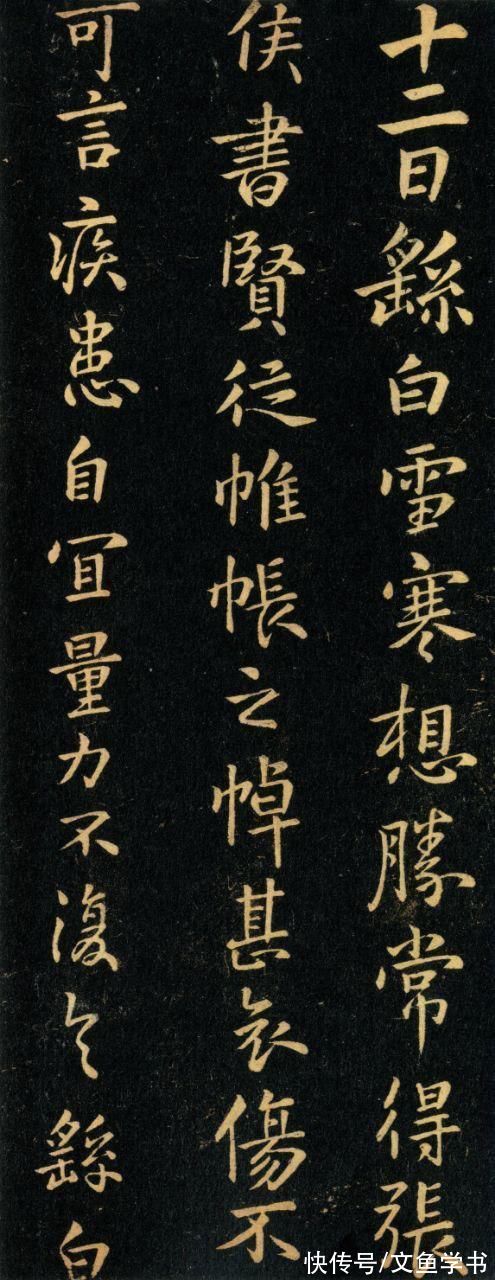 十二日繇白雪寒想勝常得張
侯書賢從帷帳之悼甚哀傷不
可言疾患自宜量力不復繇白
快传号/文鱼学书